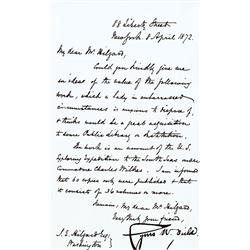 88 Liberty Street
New York 8 April 1872.
My dear Mr. Hilgard,
Could you kindly give me
an idea of the value of the following
work, which a lady in embarrassed
circumstances is anxious to dispose of,
& thinks would be a great acquisition
to some Public Library or Institution.
The work is an account of the U.S.
Exploring Expedition to the South Seas under
Commodore Charles Wilkes. I am informed
that 60 copies only were published & that
it consists of 36 volumes or more.
Remain, My dear Mr. Hilgard,
Very truly your friend,
Cyrus W. Field
J. E. Hilgard Esq.
Washington